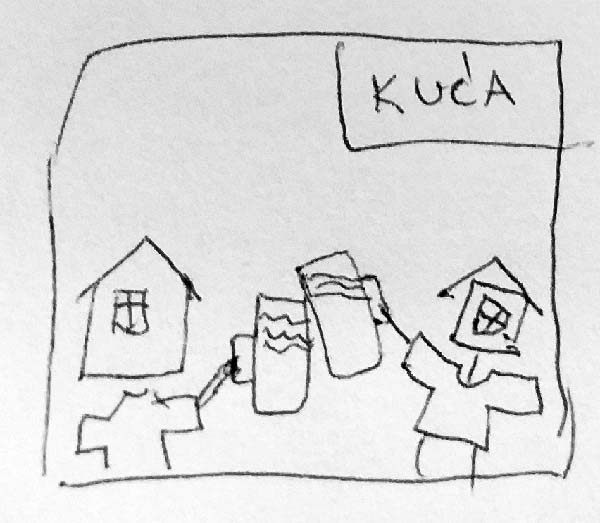 KUĆA